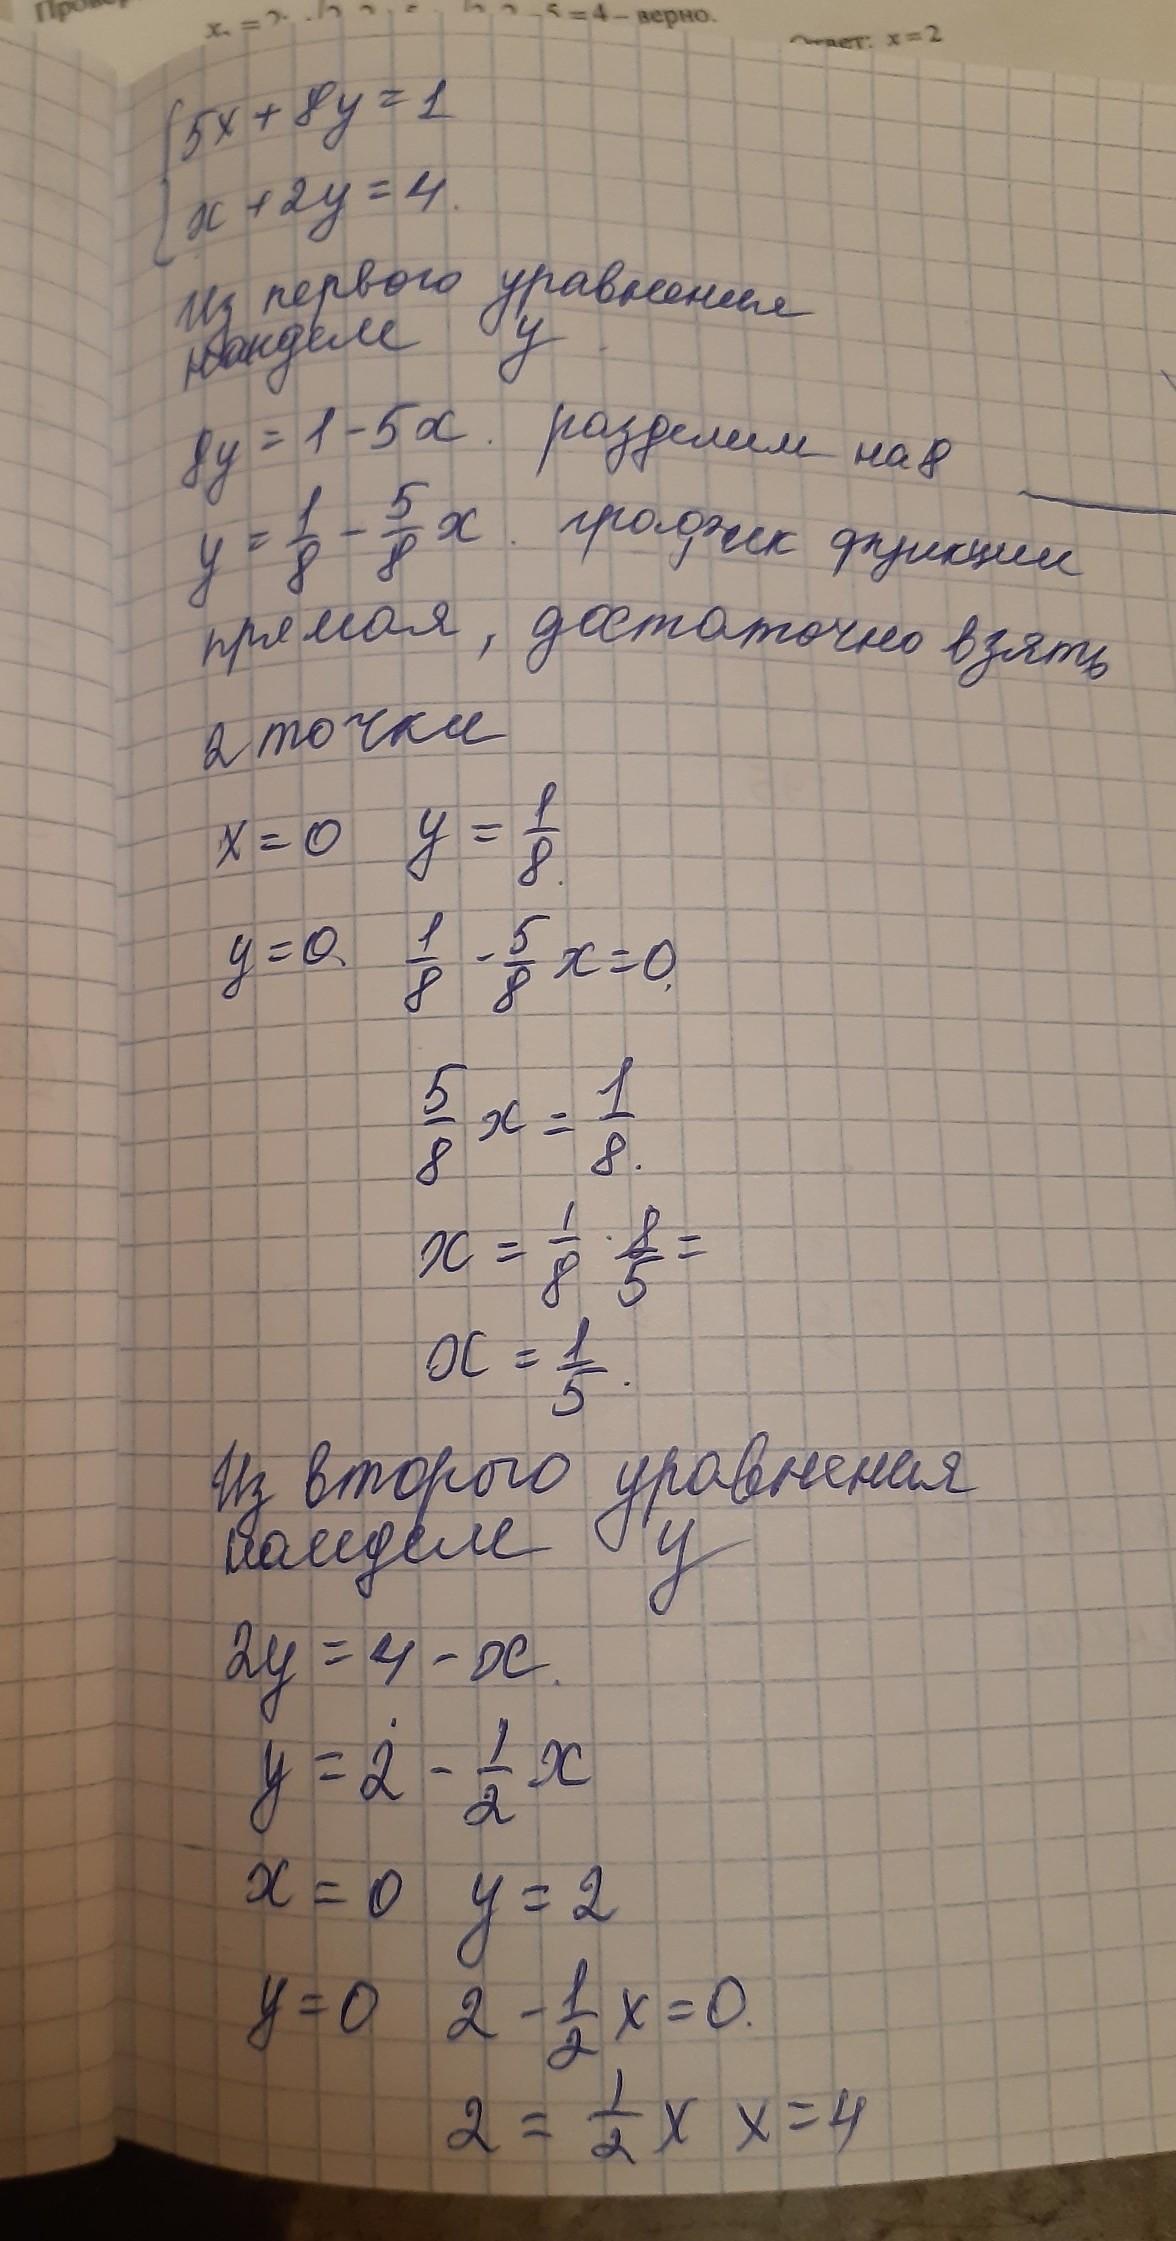 5 = 4 – верно.
x = 2
{ 5x + 8y = 1
x + 2y = 4.
Из первого уравнения
найдем y
8y = 1 - 5x. разделим на 8
y = 1/8 - 5/8 x. график функции
прямая, достаточно взять
2 точки
x = 0 y = 1/8.
y = 0. 1/8 - 5/8 x = 0.
5/8 x = 1/8.
x = 1/8 · 8/5 =
x = 1/5.
Из второго уравнения
найдем y
2y = 4 - x.
y = 2 - 1/2 x
x = 0 y = 2
y = 0 2 - 1/2 x = 0.
2 = 1/2 x x = 4